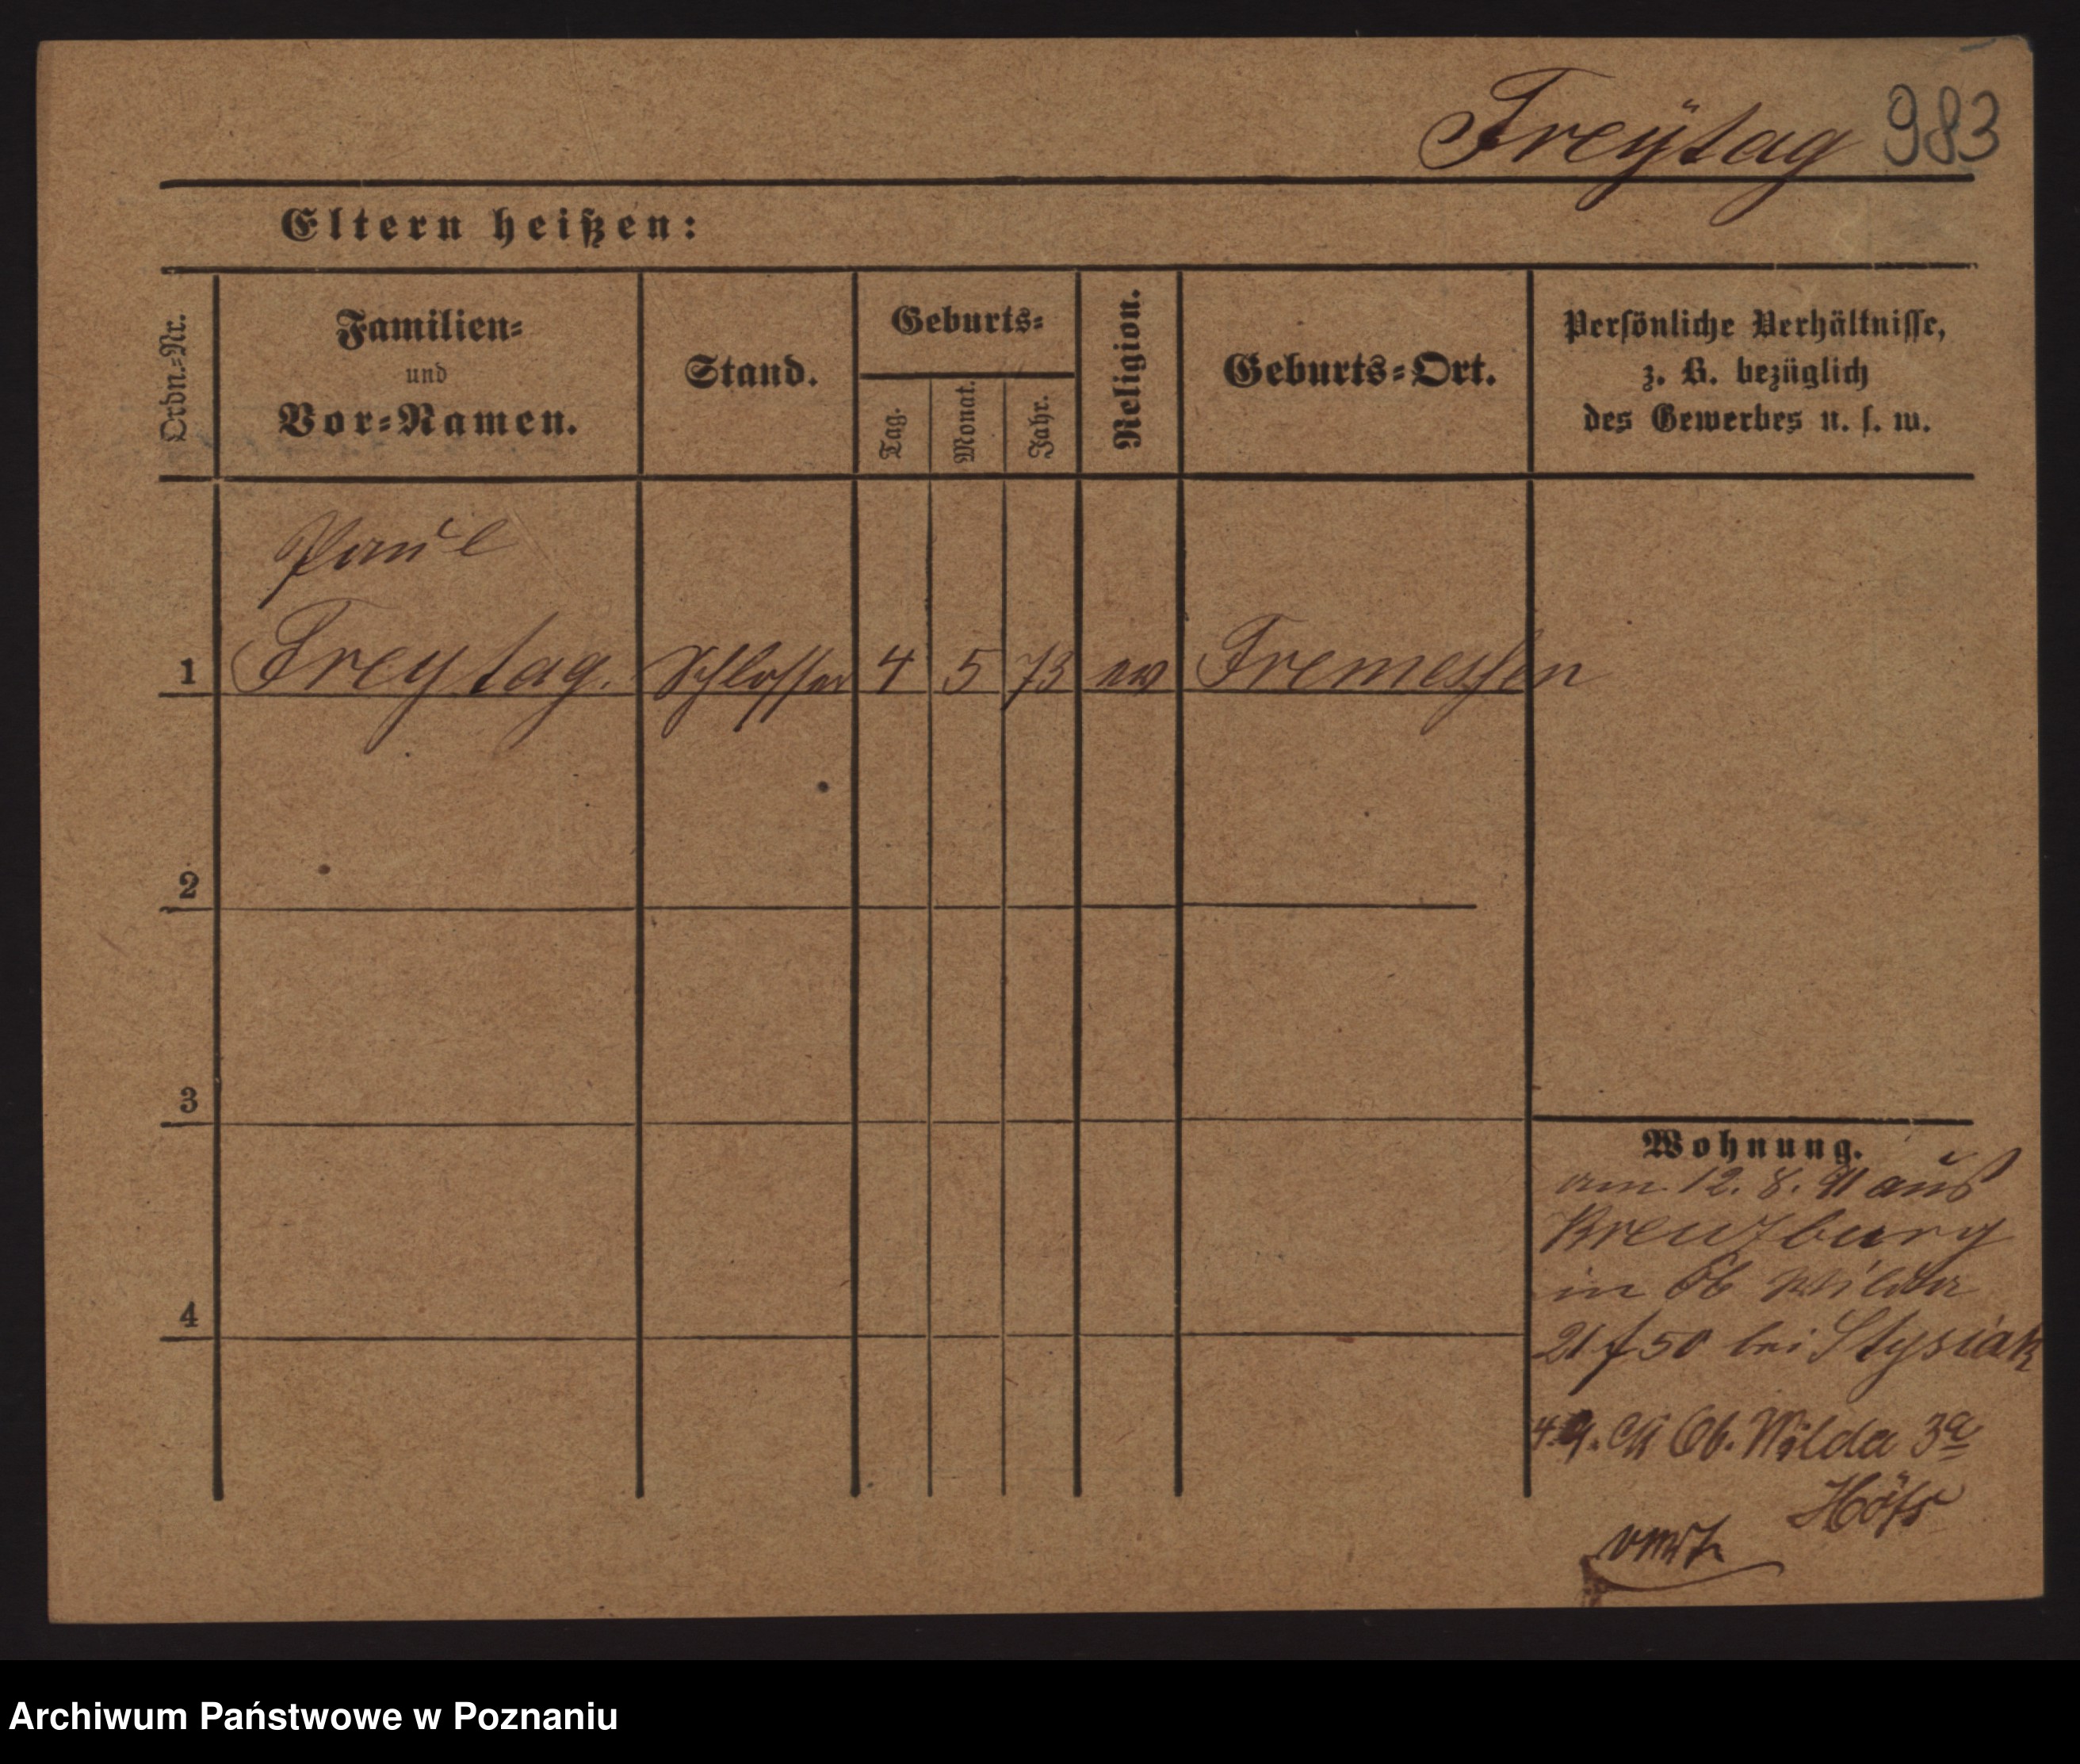 Freÿtag 983
Eltern heißen:
Ordn.=Nr.
Familien=
und
Vor=Namen.
Stand.
Geburts=
Tag.
Monat.
Jahr.
Religion.
Geburts=Ort.
Persönliche Verhältnisse,
z. B. bezüglich
des Gewerbes u. s. w.
Paul
1 Freytag. Schlosser 4 5 73 ev Tremessen
2
3
4
Wohnung.
am 12. 8. 91 aus
Kreuzburg
in Ob Wilda
50 bei Stysiak
4. 9. 91 Ob. Wilda 3a
Archiwum Państwowe w Poznaniu